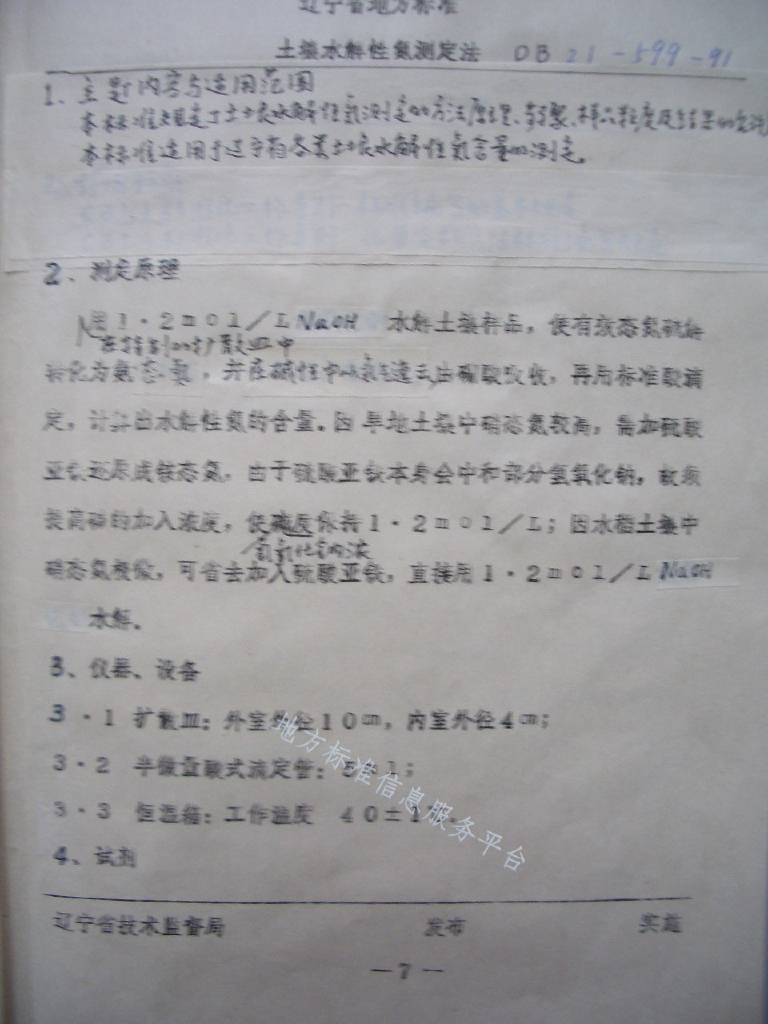 辽宁省地方标准
土壤水解性氮测定法 DB 21-599-91
1、主题内容与适用范围
本标准规定了土壤水解性氮测定的方法原理、步骤、样品粒度及结果的允许
本标准适用于辽宁省各类土壤水解性氮含量的测定。
2、测定原理
用1·2mol/L NaOH 水解土壤样品，使有效态氮碱解
在特制的扩散皿中
转化为氨态氮，并在碱性中以氨气逸出由硼酸吸收，再用标准酸滴
定，计算出水解性氮的含量。因旱地土壤中硝态氮较高，需加硫酸
亚铁还原成铵态氮，由于硫酸亚铁本身会中和部分氢氧化钠，故须
提高碱的加入浓度，使碱度保持1·2mol/L；因水稻土壤中
氢氧化钠浓
硝态氮极微，可省去加入硫酸亚铁，直接用1·2mol/L NaOH
水解。
3、仪器、设备
3·1 扩散皿：外室外径10cm，内室外径4cm；
3·2 半微量酸式滴定管：5ml；
3·3 恒温箱：工作温度 40±1℃。
地方标准信息服务平台
4、试剂
辽宁省技术监督局 发布 实施
—7—